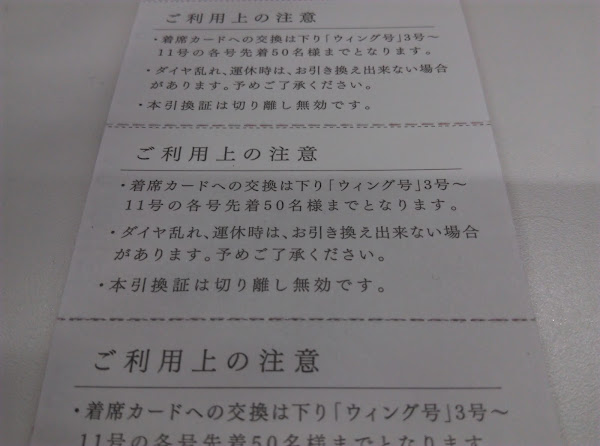 ご利用上の注意
・着席カードへの交換は下り「ウィング号」3号～
11号の各号先着50名様までとなります。
・ダイヤ乱れ、運休時は、お引き換え出来ない場合
があります。予めご了承ください。
・本引換証は切り離し無効です。
ご利用上の注意
・着席カードへの交換は下り「ウィング号」3号～
11号の各号先着50名様までとなります。
・ダイヤ乱れ、運休時は、お引き換え出来ない場合
があります。予めご了承ください。
・本引換証は切り離し無効です。
ご利用上の注意
・着席カードへの交換は下り「ウィング号」3号～
11号の各号先着50名様までとなります